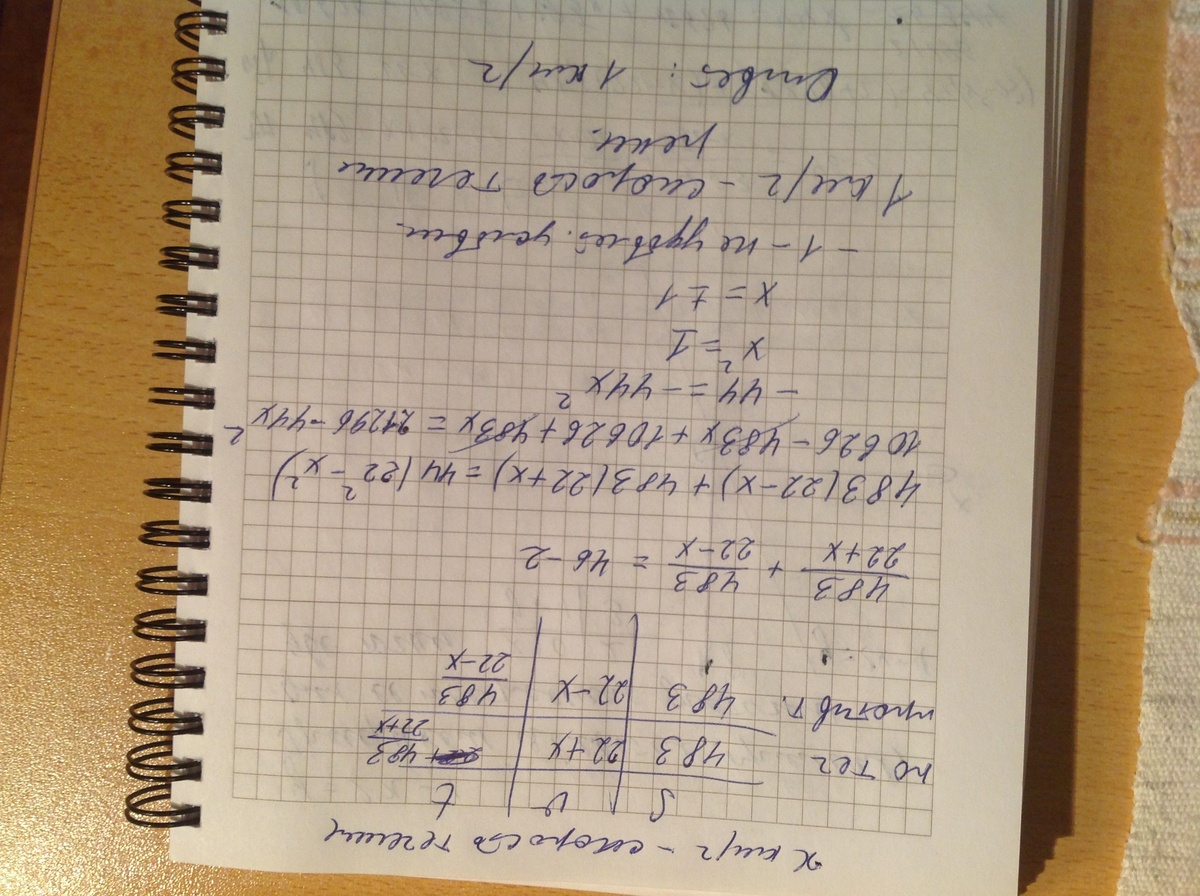 x км/г - скорость течения
S v t
по теч 483 22+x 483/22+x
против т. 483 22-x 483/22-x
483/22+x + 483/22-x = 46-2
483(22-x)+483(22+x)=44(22²-x²)
10626-483x+10626+483x=21296-44x²
-44=-44x²
x²=1
x=±1
-1-не удовлет. услов
1 км/г - скорость течения
реки.
Ответ: 1 км/г